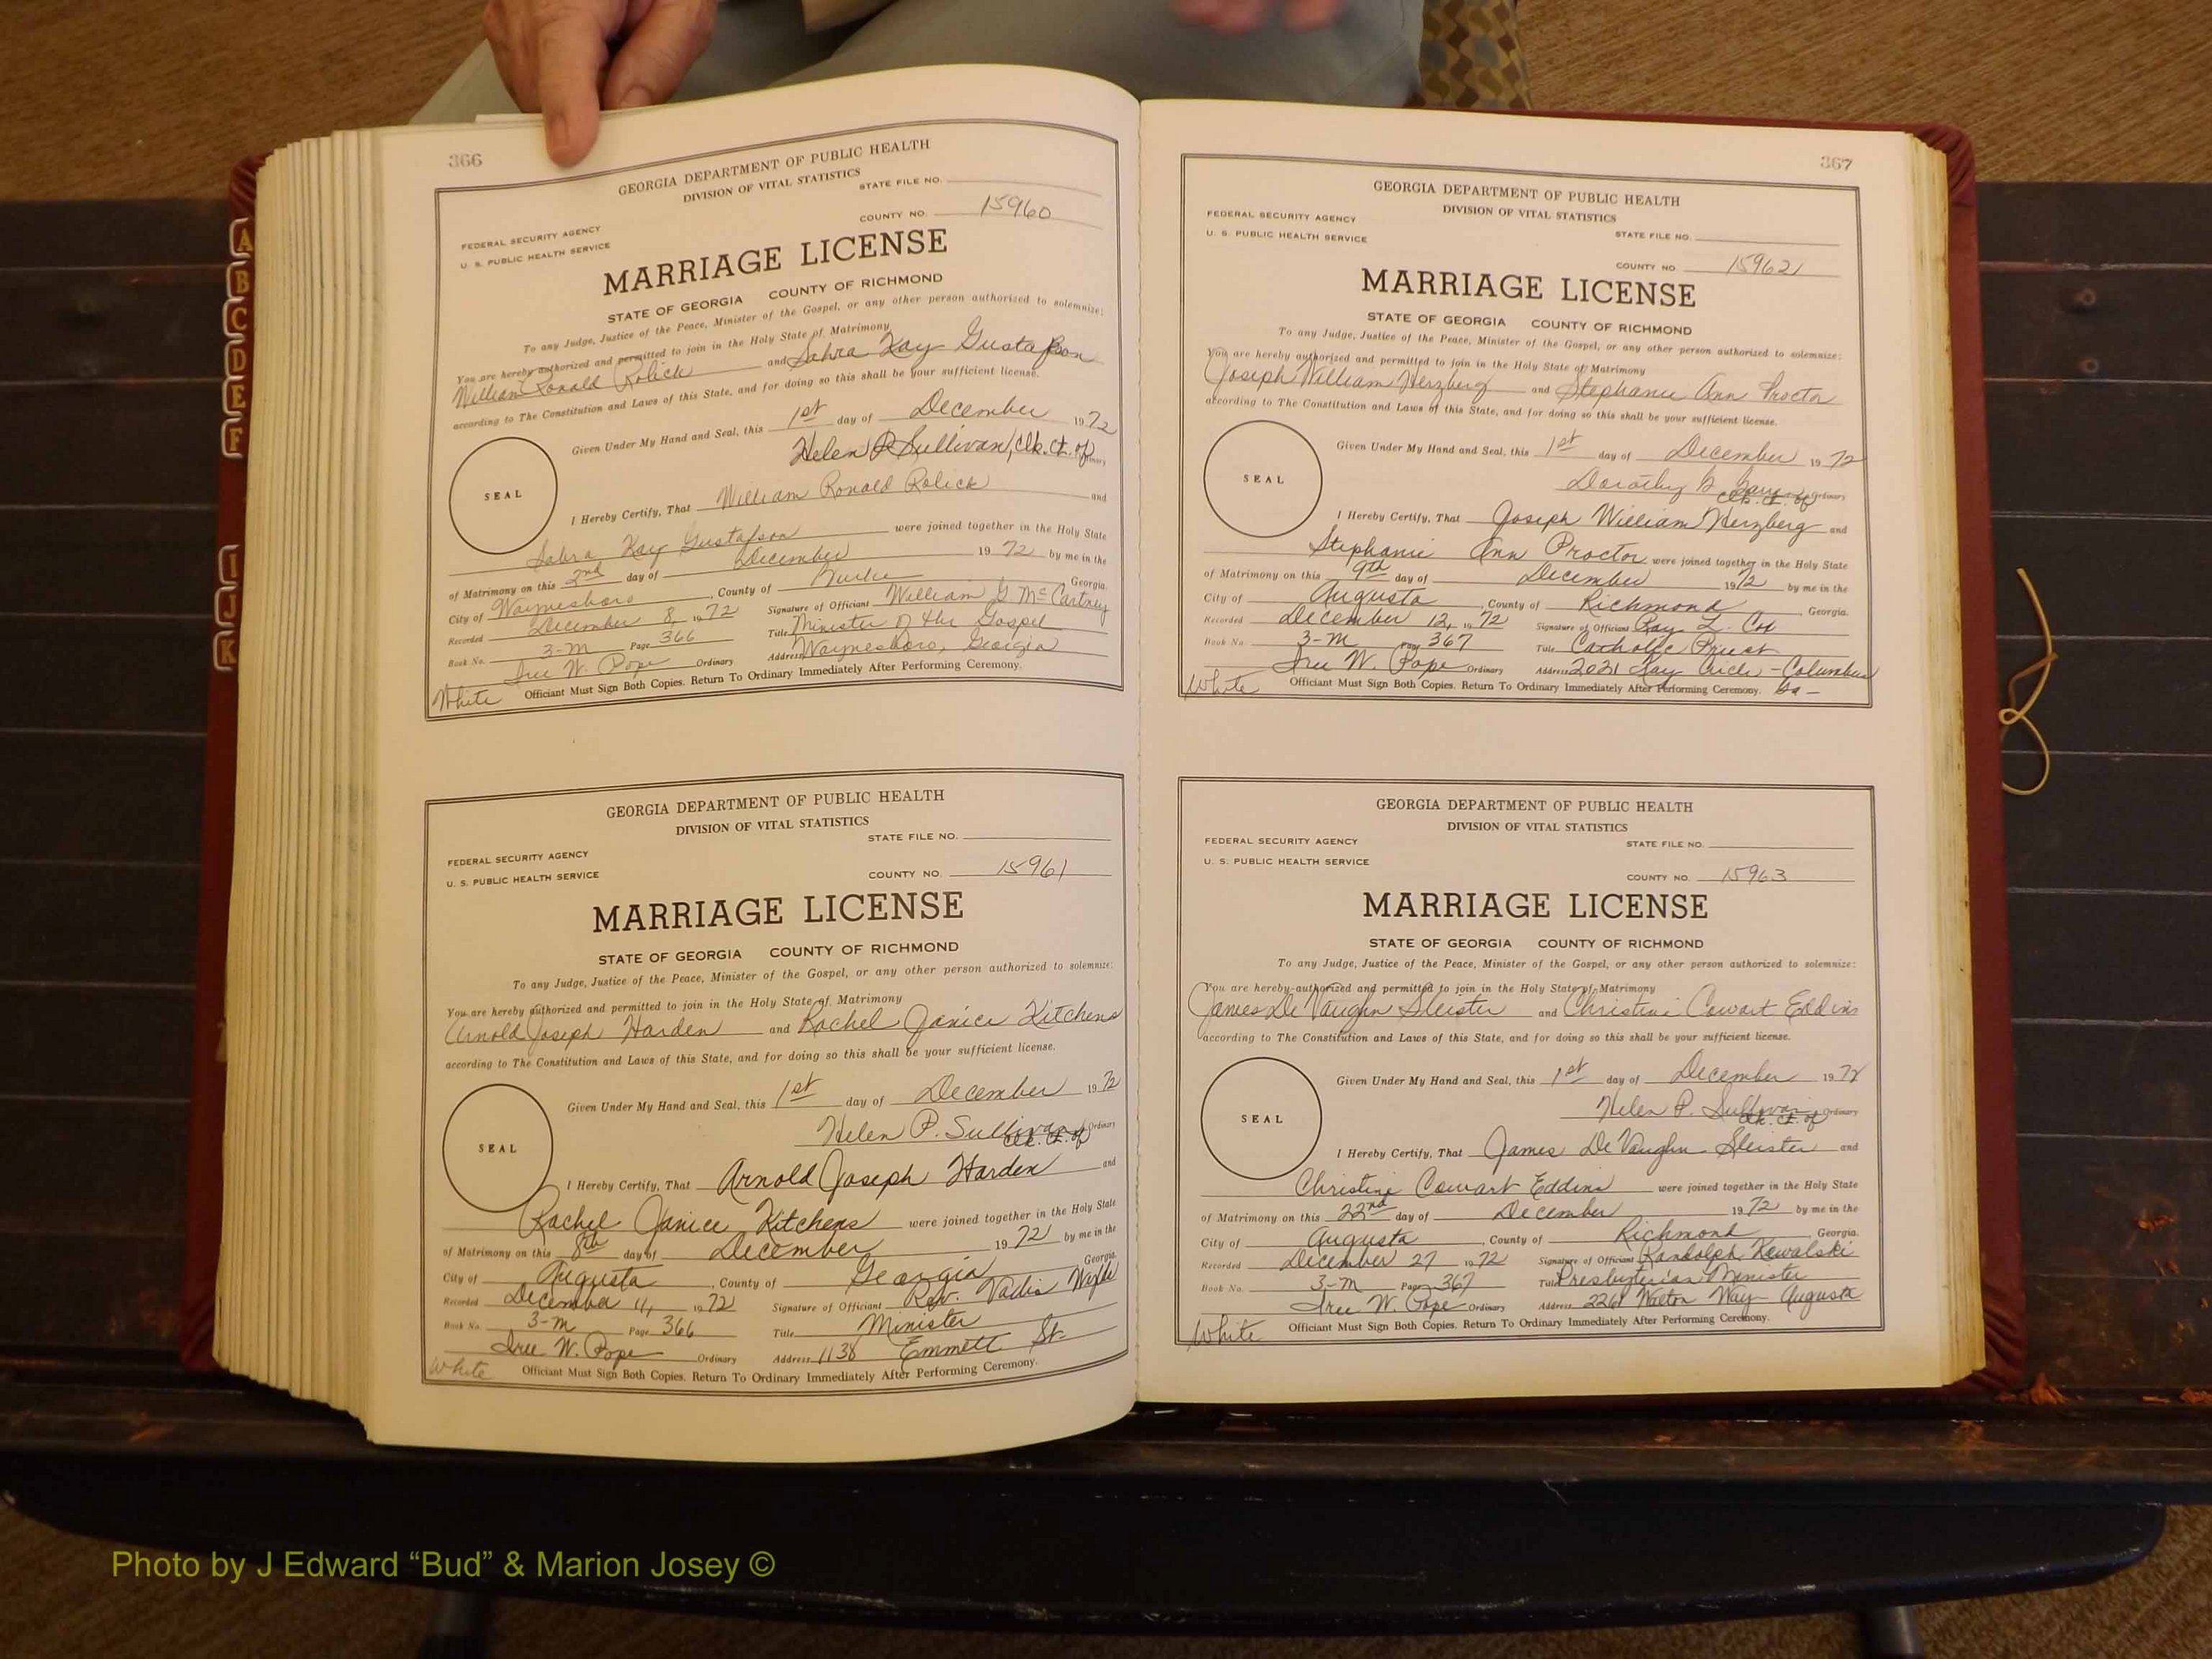 366
GEORGIA DEPARTMENT OF PUBLIC HEALTH
DIVISION OF VITAL STATISTICS
STATE FILE NO.
COUNTY NO. 15960
FEDERAL SECURITY AGENCY
U. S. PUBLIC HEALTH SERVICE
MARRIAGE LICENSE
STATE OF GEORGIA COUNTY OF RICHMOND
To any Judge, Justice of the Peace, Minister of the Gospel, or any other person authorized to solemnize:
You are hereby authorized and permitted to join in the Holy State of Matrimony
William Ronald Rolick and Sabra Kay Gustafson
according to The Constitution and Laws of this State, and for doing so this shall be your sufficient license.
Given Under My Hand and Seal, this 1st day of December 1972
Helen P. Sullivan, Clk. Ct. of Ordinary
SEAL
I Hereby Certify, That William Ronald Rolick and
Sabra Kay Gustafson were joined together in the Holy State
of Matrimony on this 2nd day of December 1972 by me in the
City of Waynesboro, County of Burke Georgia.
Recorded December 8, 1972 Signature of Officiant William G McCartney
Book No. 3-M Page 366 Title Minister of the Gospel
Iree W. Pope Ordinary Address Waynesboro, Georgia
White Officiant Must Sign Both Copies. Return To Ordinary Immediately After Performing Ceremony.
GEORGIA DEPARTMENT OF PUBLIC HEALTH
DIVISION OF VITAL STATISTICS
STATE FILE NO.
FEDERAL SECURITY AGENCY
U. S. PUBLIC HEALTH SERVICE
COUNTY NO. 15961
MARRIAGE LICENSE
STATE OF GEORGIA COUNTY OF RICHMOND
To any Judge, Justice of the Peace, Minister of the Gospel, or any other person authorized to solemnize:
You are hereby authorized and permitted to join in the Holy State of Matrimony
Arnold Joseph Harden and Rachel Janice Kitchens
according to The Constitution and Laws of this State, and for doing so this shall be your sufficient license.
Given Under My Hand and Seal, this 1st day of December 1972
Helen P. Sullivan Clk. Ct. of Ordinary
SEAL
I Hereby Certify, That Arnold Joseph Harden and
Rachel Janice Kitchens were joined together in the Holy State
of Matrimony on this 8th day of December 1972 by me in the
City of Augusta, County of Georgia Georgia.
Recorded December 11, 1972 Signature of Officiant Rev. Vadis
Book No. 3-M Page 366 Title Minister
Iree W. Pope Ordinary Address 1138 Emmett St.
White Officiant Must Sign Both Copies. Return To Ordinary Immediately After Performing Ceremony.
367
GEORGIA DEPARTMENT OF PUBLIC HEALTH
DIVISION OF VITAL STATISTICS
FEDERAL SECURITY AGENCY
U. S. PUBLIC HEALTH SERVICE
STATE FILE NO.
COUNTY NO. 15962
MARRIAGE LICENSE
STATE OF GEORGIA COUNTY OF RICHMOND
To any Judge, Justice of the Peace, Minister of the Gospel, or any other person authorized to solemnize:
You are hereby authorized and permitted to join in the Holy State of Matrimony
Joseph William Herzberg and Stephanie Ann Proctor
according to The Constitution and Laws of this State, and for doing so this shall be your sufficient license.
Given Under My Hand and Seal, this 1st day of December 1972
Dorothy B Clk. Ct. of Ordinary
SEAL
I Hereby Certify, That Joseph William Herzberg and
Stephanie Ann Proctor were joined together in the Holy State
of Matrimony on this 9th day of December 1972 by me in the
City of Augusta, County of Richmond, Georgia.
Recorded December 12, 1972 Signature of Officiant Ray L. Cox
Book No. 3-M Page 367 Title Catholic Priest
Iree W. Pope Ordinary Address 2031 Kay Circle - Columbus
White Officiant Must Sign Both Copies. Return To Ordinary Immediately After Performing Ceremony. Ga -
GEORGIA DEPARTMENT OF PUBLIC HEALTH
DIVISION OF VITAL STATISTICS
FEDERAL SECURITY AGENCY
U. S. PUBLIC HEALTH SERVICE
STATE FILE NO.
COUNTY NO. 15963
MARRIAGE LICENSE
STATE OF GEORGIA COUNTY OF RICHMOND
To any Judge, Justice of the Peace, Minister of the Gospel, or any other person authorized to solemnize:
You are hereby authorized and permitted to join in the Holy State of Matrimony
James De Vaughn Sleister and Christine Cowart Eddins
according to The Constitution and Laws of this State, and for doing so this shall be your sufficient license.
Given Under My Hand and Seal, this 1st day of December 1972
Helen P. Sullivan Clk. Ct. of Ordinary
SEAL
I Hereby Certify, That James De Vaughn Sleister and
Christine Cowart Eddins were joined together in the Holy State
of Matrimony on this 22nd day of December 1972 by me in the
City of Augusta, County of Richmond, Georgia.
Recorded December 27 1972 Signature of Officiant Randolph Kowalski
Book No. 3-M Page 367 Title Presbyterian Minister
Iree W. Pope Ordinary Address 2261 Walton Way - Augusta
White Officiant Must Sign Both Copies. Return To Ordinary Immediately After Performing Ceremony.
A
B
C
D
E
F
I
J
K
Photo by J Edward “Bud” & Marion Josey ©